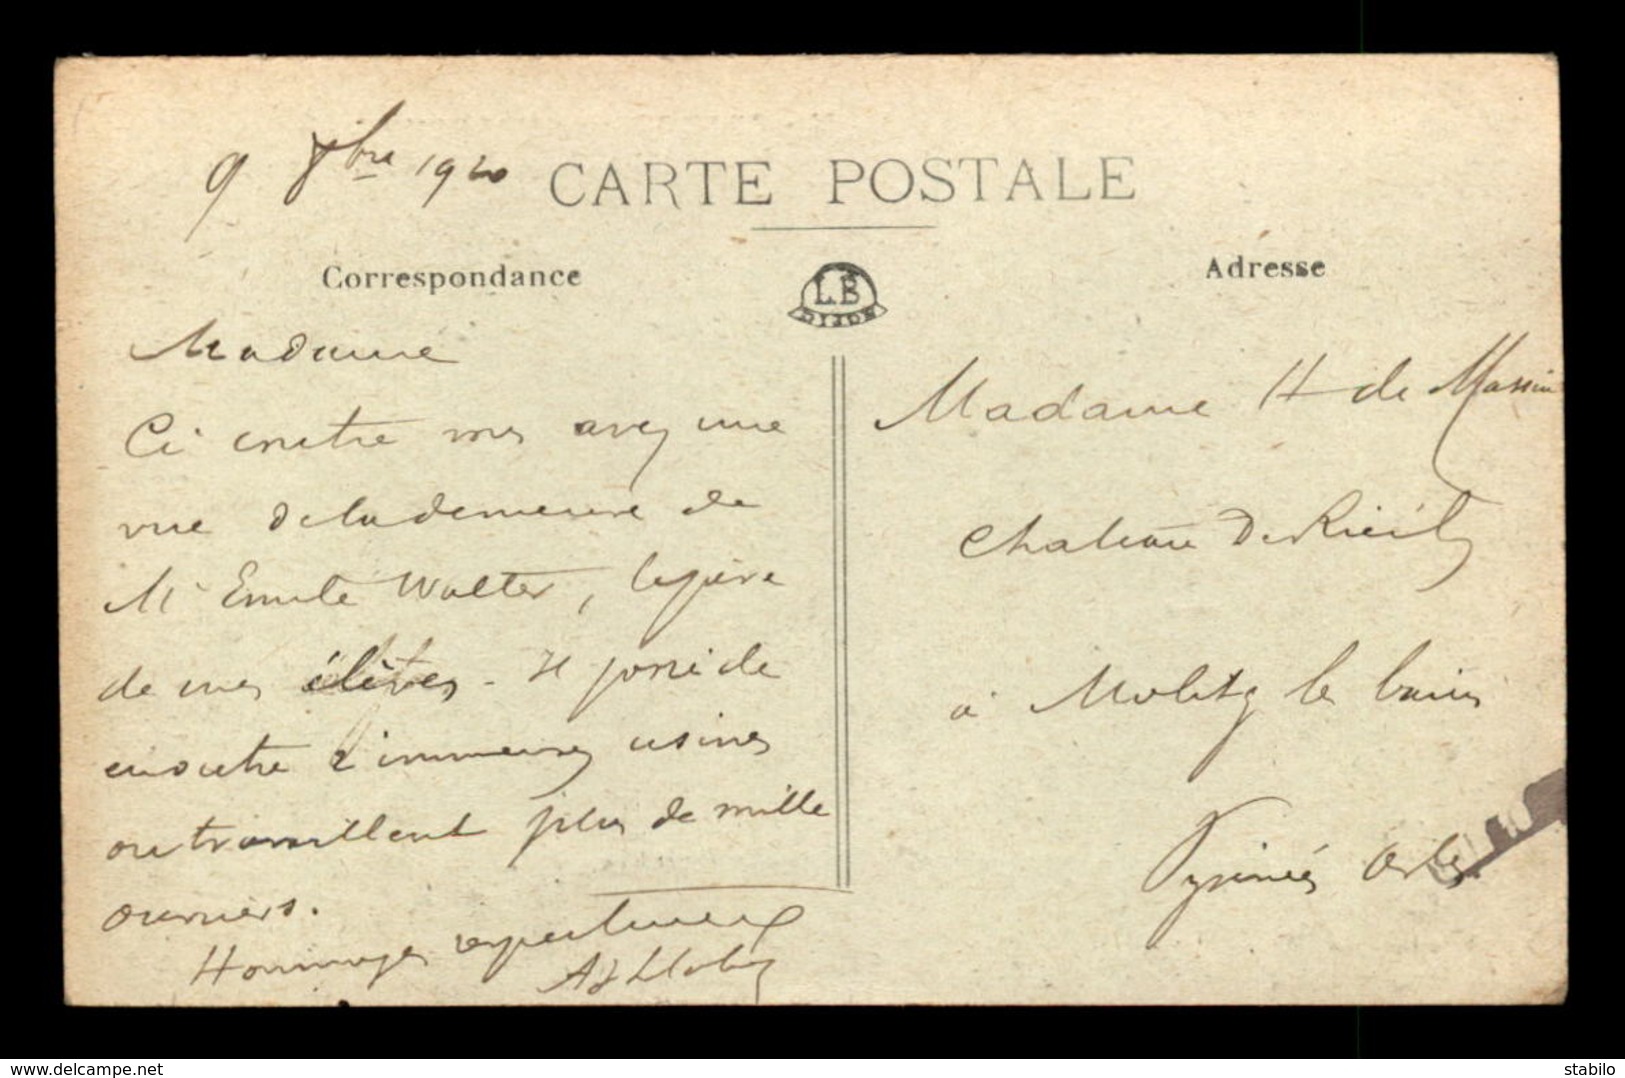 9 bre 1920
CARTE POSTALE
Correspondance
Adresse
LB
DIJON
Madame
Ci contre vous avez une
vue de la demeure de
Mr Emile Walter, le père
de mes élèves - Il possède
en outre d'immenses usines
ou travaillent plus de mille
ouvriers.
Hommages respectueux
Madame H de Massia
Chateau De
à Molitg les bains
Pyrénées Or les
delcampe.net
stabilo